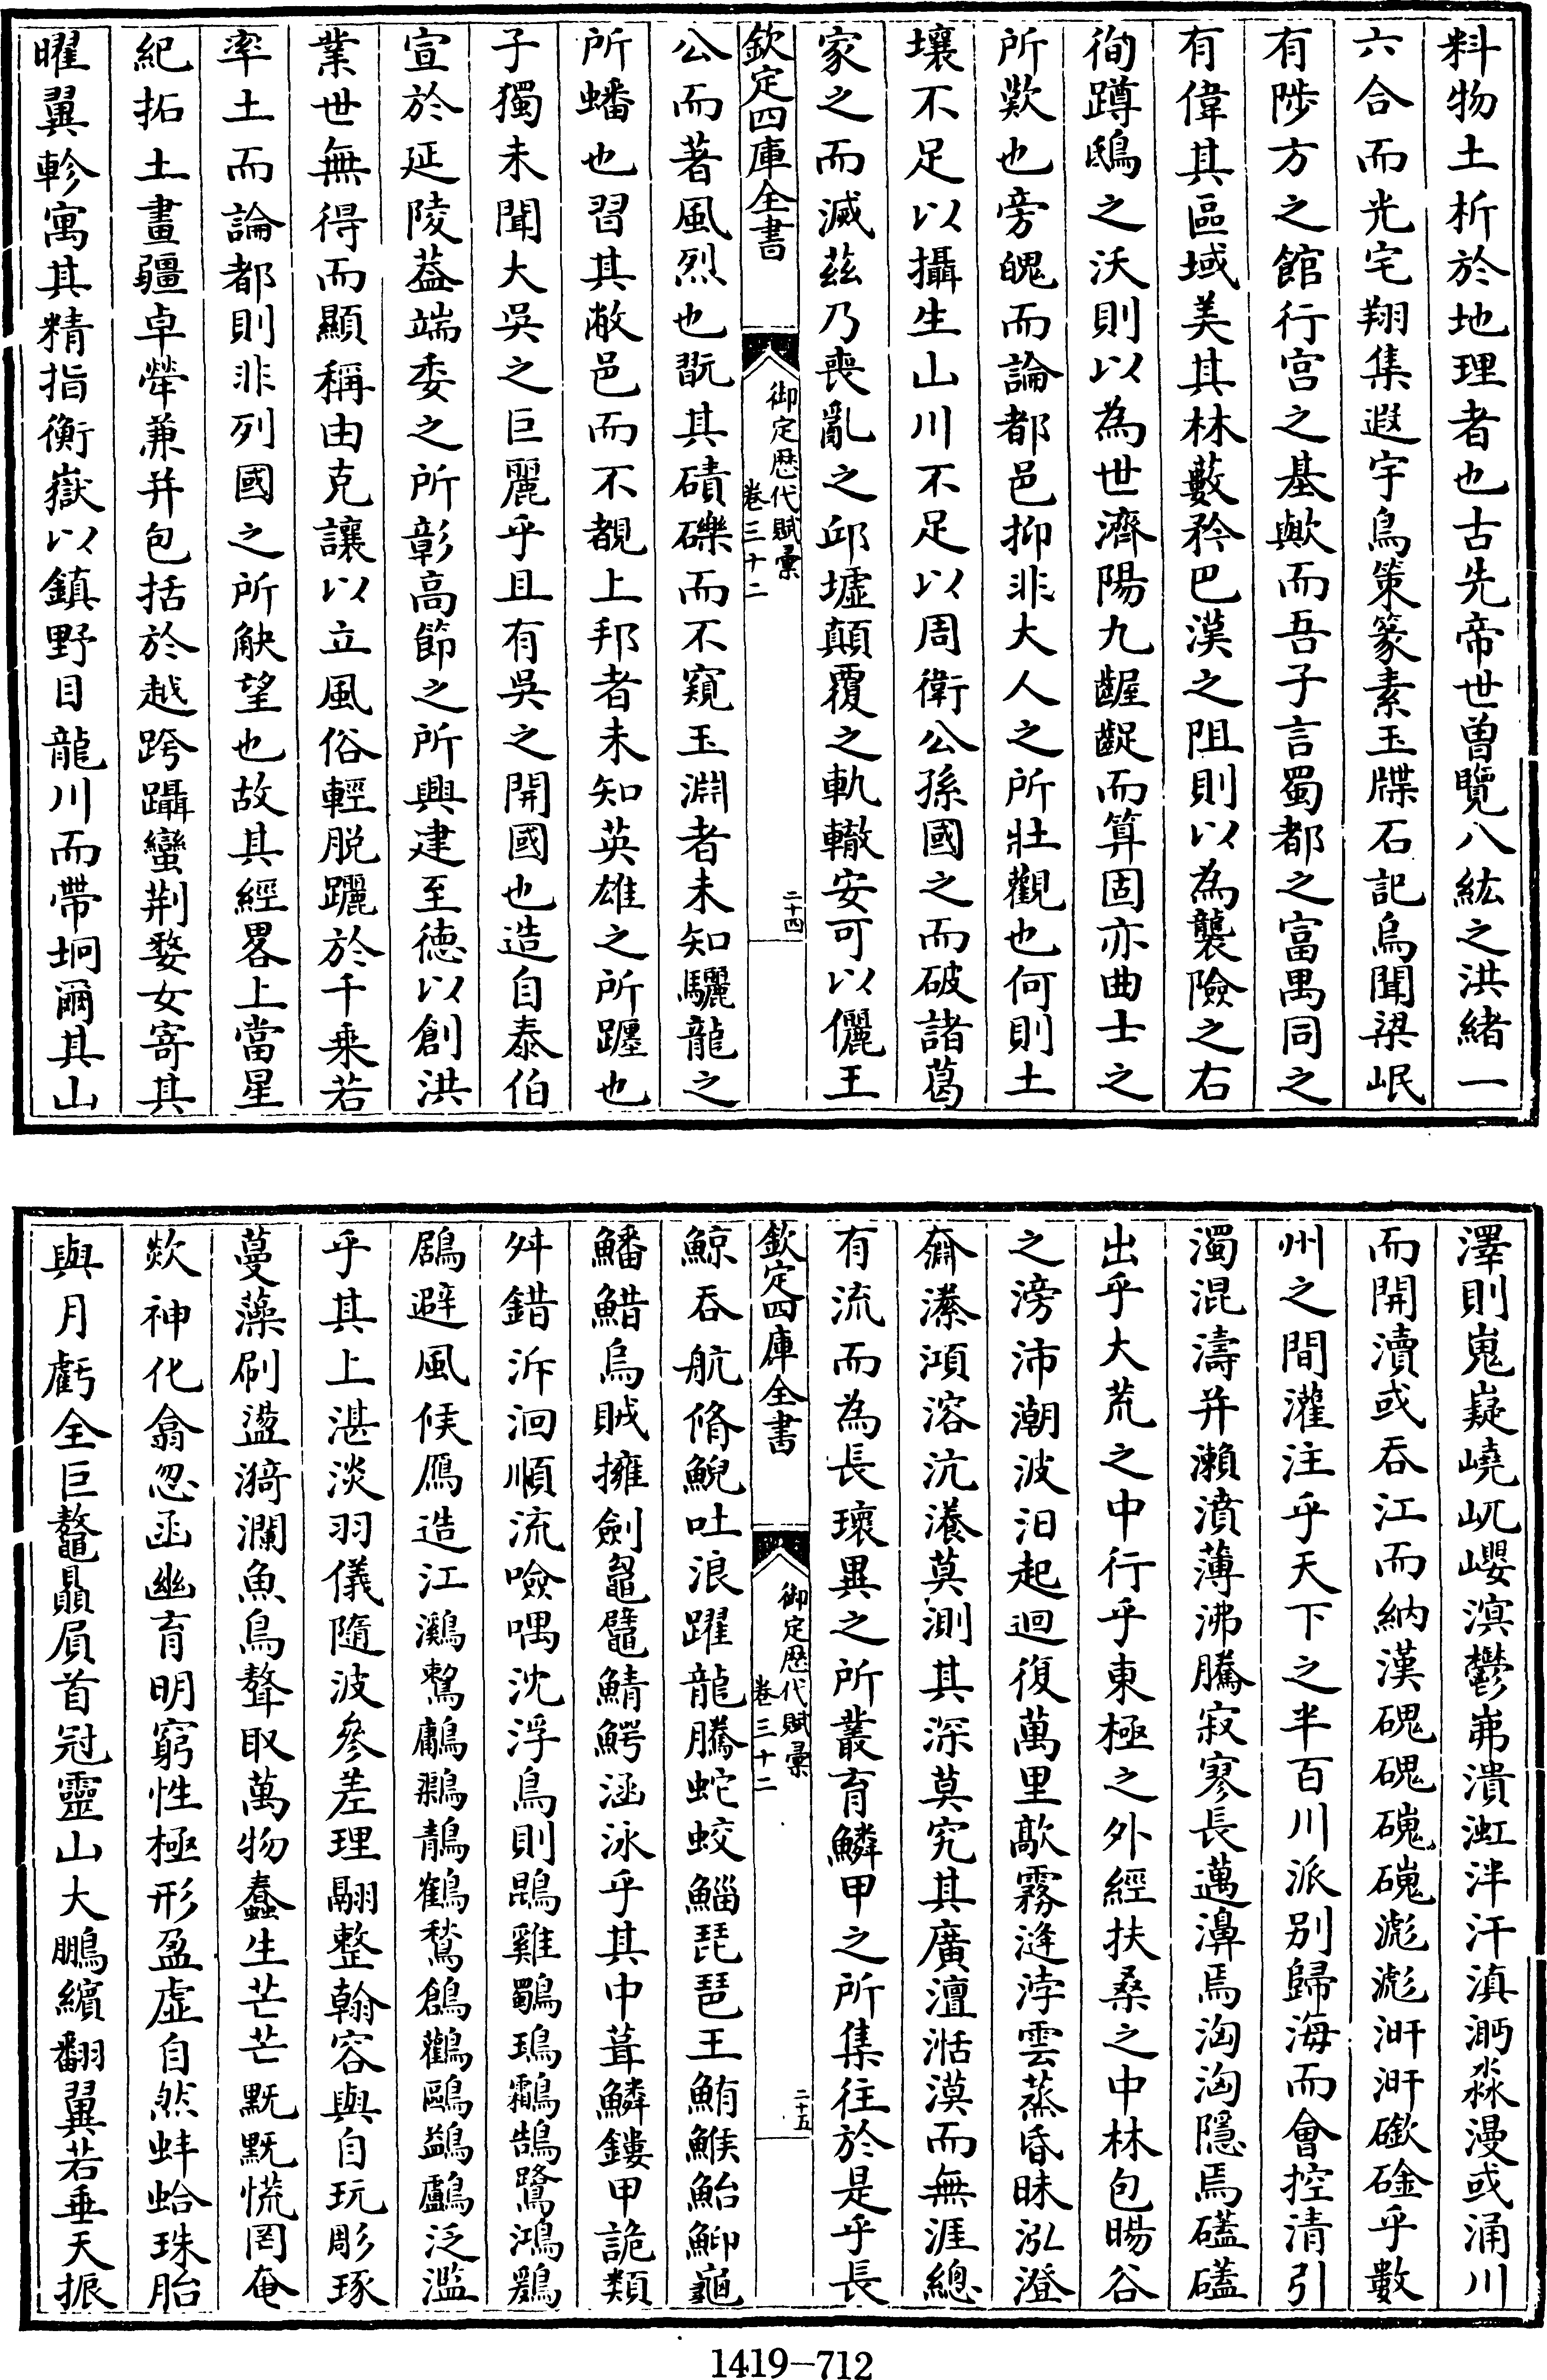 料物土析於地理者也古先帝世曽覽八紘之洪緒一
六合而光宅翔集遐宇鳥策篆素玉牒石記烏聞梁岷
有陟方之館行宫之基歟而吾子言蜀都之富禺同之
有偉其區域美其林藪矜巴漢之阻則以為襲險之右
徇蹲鴟之沃則以為世濟陽九齷齪而算固亦曲士之
所歎也旁魄而論都邑抑非大人之所壯觀也何則土
壤不足以攝生山川不足以周衛公孫國之而破諸葛
家之而滅茲乃喪亂之邱墟顛覆之軌轍安可以儷王
欽定四庫全書
御定歴代賦彚
卷三十二
二十四
公而著風烈也翫其磧礫而不窺玉淵者未知驪龍之
所蟠也習其敝邑而不覩上邦者未知英雄之所躔也
子獨未聞大吳之巨麗乎且有吳之開國也造自泰伯
宣於延陵葢端委之所彰高節之所興建至德以創洪
業世無得而顯稱由克讓以立風俗輕脱躧於千乗若
率土而論都則非列國之所觖望也故其經畧上當星
紀拓土畫疆卓犖兼并包括於越跨躡蠻荆婺女寄其
曜翼軫寓其精指衡嶽以鎮野目龍川而帶坰爾其山
澤則嵬嶷嶢屼巊溟鬱岪潰渱泮汗滇㴐淼漫或涌川
而開瀆或吞江而納漢磈磈磑磑滮滮涆涆磤硍乎數
州之間灌注乎天下之半百川派别歸海而會控清引
濁混濤并瀨濆薄沸騰寂寥長邁濞焉洶洶隱焉礚礚
出乎大荒之中行乎東極之外經扶桑之中林包暘谷
之滂沛潮波汩起迴復萬里歊霧漨浡雲蒸昏昧泓澄
奫潫澒溶沆瀁莫測其深莫究其廣澶湉漠而無涯總
有流而為長瓌異之所叢育鱗甲之所集往於是乎長
欽定四庫全書
御定歴代賦彚
卷三十二
二十五
鯨吞航脩鯢吐浪躍龍騰蛇蛟鯔琵琶王鮪鯸鮐鮣龜
鱕䱜烏賊擁劍𪓟鼊鯖鰐涵泳乎其中葺鱗鏤甲詭類
舛錯泝洄順流噞喁沈浮鳥則鵾雞鸀鳿鸘鵠鷺鴻鶢
鶋避風候鴈造江㶉鶒鷛𪆫鶄鶴鶖鶬鸛鷗鷁鸕泛濫
乎其上湛淡羽儀隨波參差理翮整翰容與自玩彫琢
蔓藻刷盪漪瀾魚鳥聱耴萬物蠢生芒芒黖黖慌罔奄
欻神化翕忽函幽育明窮性極形盈虛自然蚌蛤珠胎
與月虧全巨鼇贔屓首冠靈山大鵬繽翻翼若垂天振
1419—712